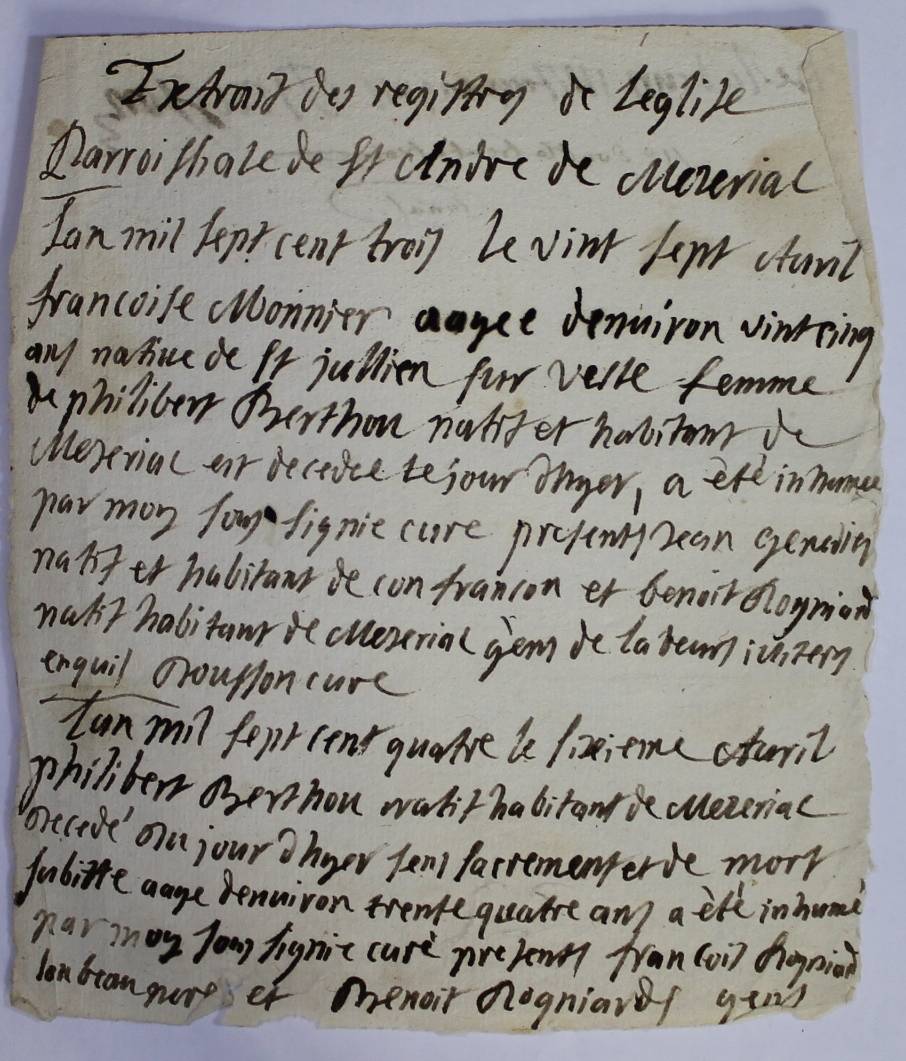 Extrait des registres de leglise
Parroissiale de St Andre de Mezeriat
Lan mil sept cent trois le vint sept Auril
francoise Monnier aagee denuiron vintcinq
ans natiue de St jullien sur vesle femme
de philibert Berthou natif et habitant de
Mezeriat est decedee le jour dhyer, a été inhumee
par moy sous signie cure presents Jean
natif et habitant de confrancon et benoit Rogniard
natif habitant de Mezeriat gens de labeurs
enquis Rousson cure
Lan mil sept cent quatre le sixieme Auril
philibert Berthou natif habitant de Mezeriat
decedé du jour dhyer sens sacrements et de mort
subitte aage denuiron trente quatre ans a été inhumé
par moy sous signie curé presents francois Rogniard
son beau pere et Benoit Rogniards gens